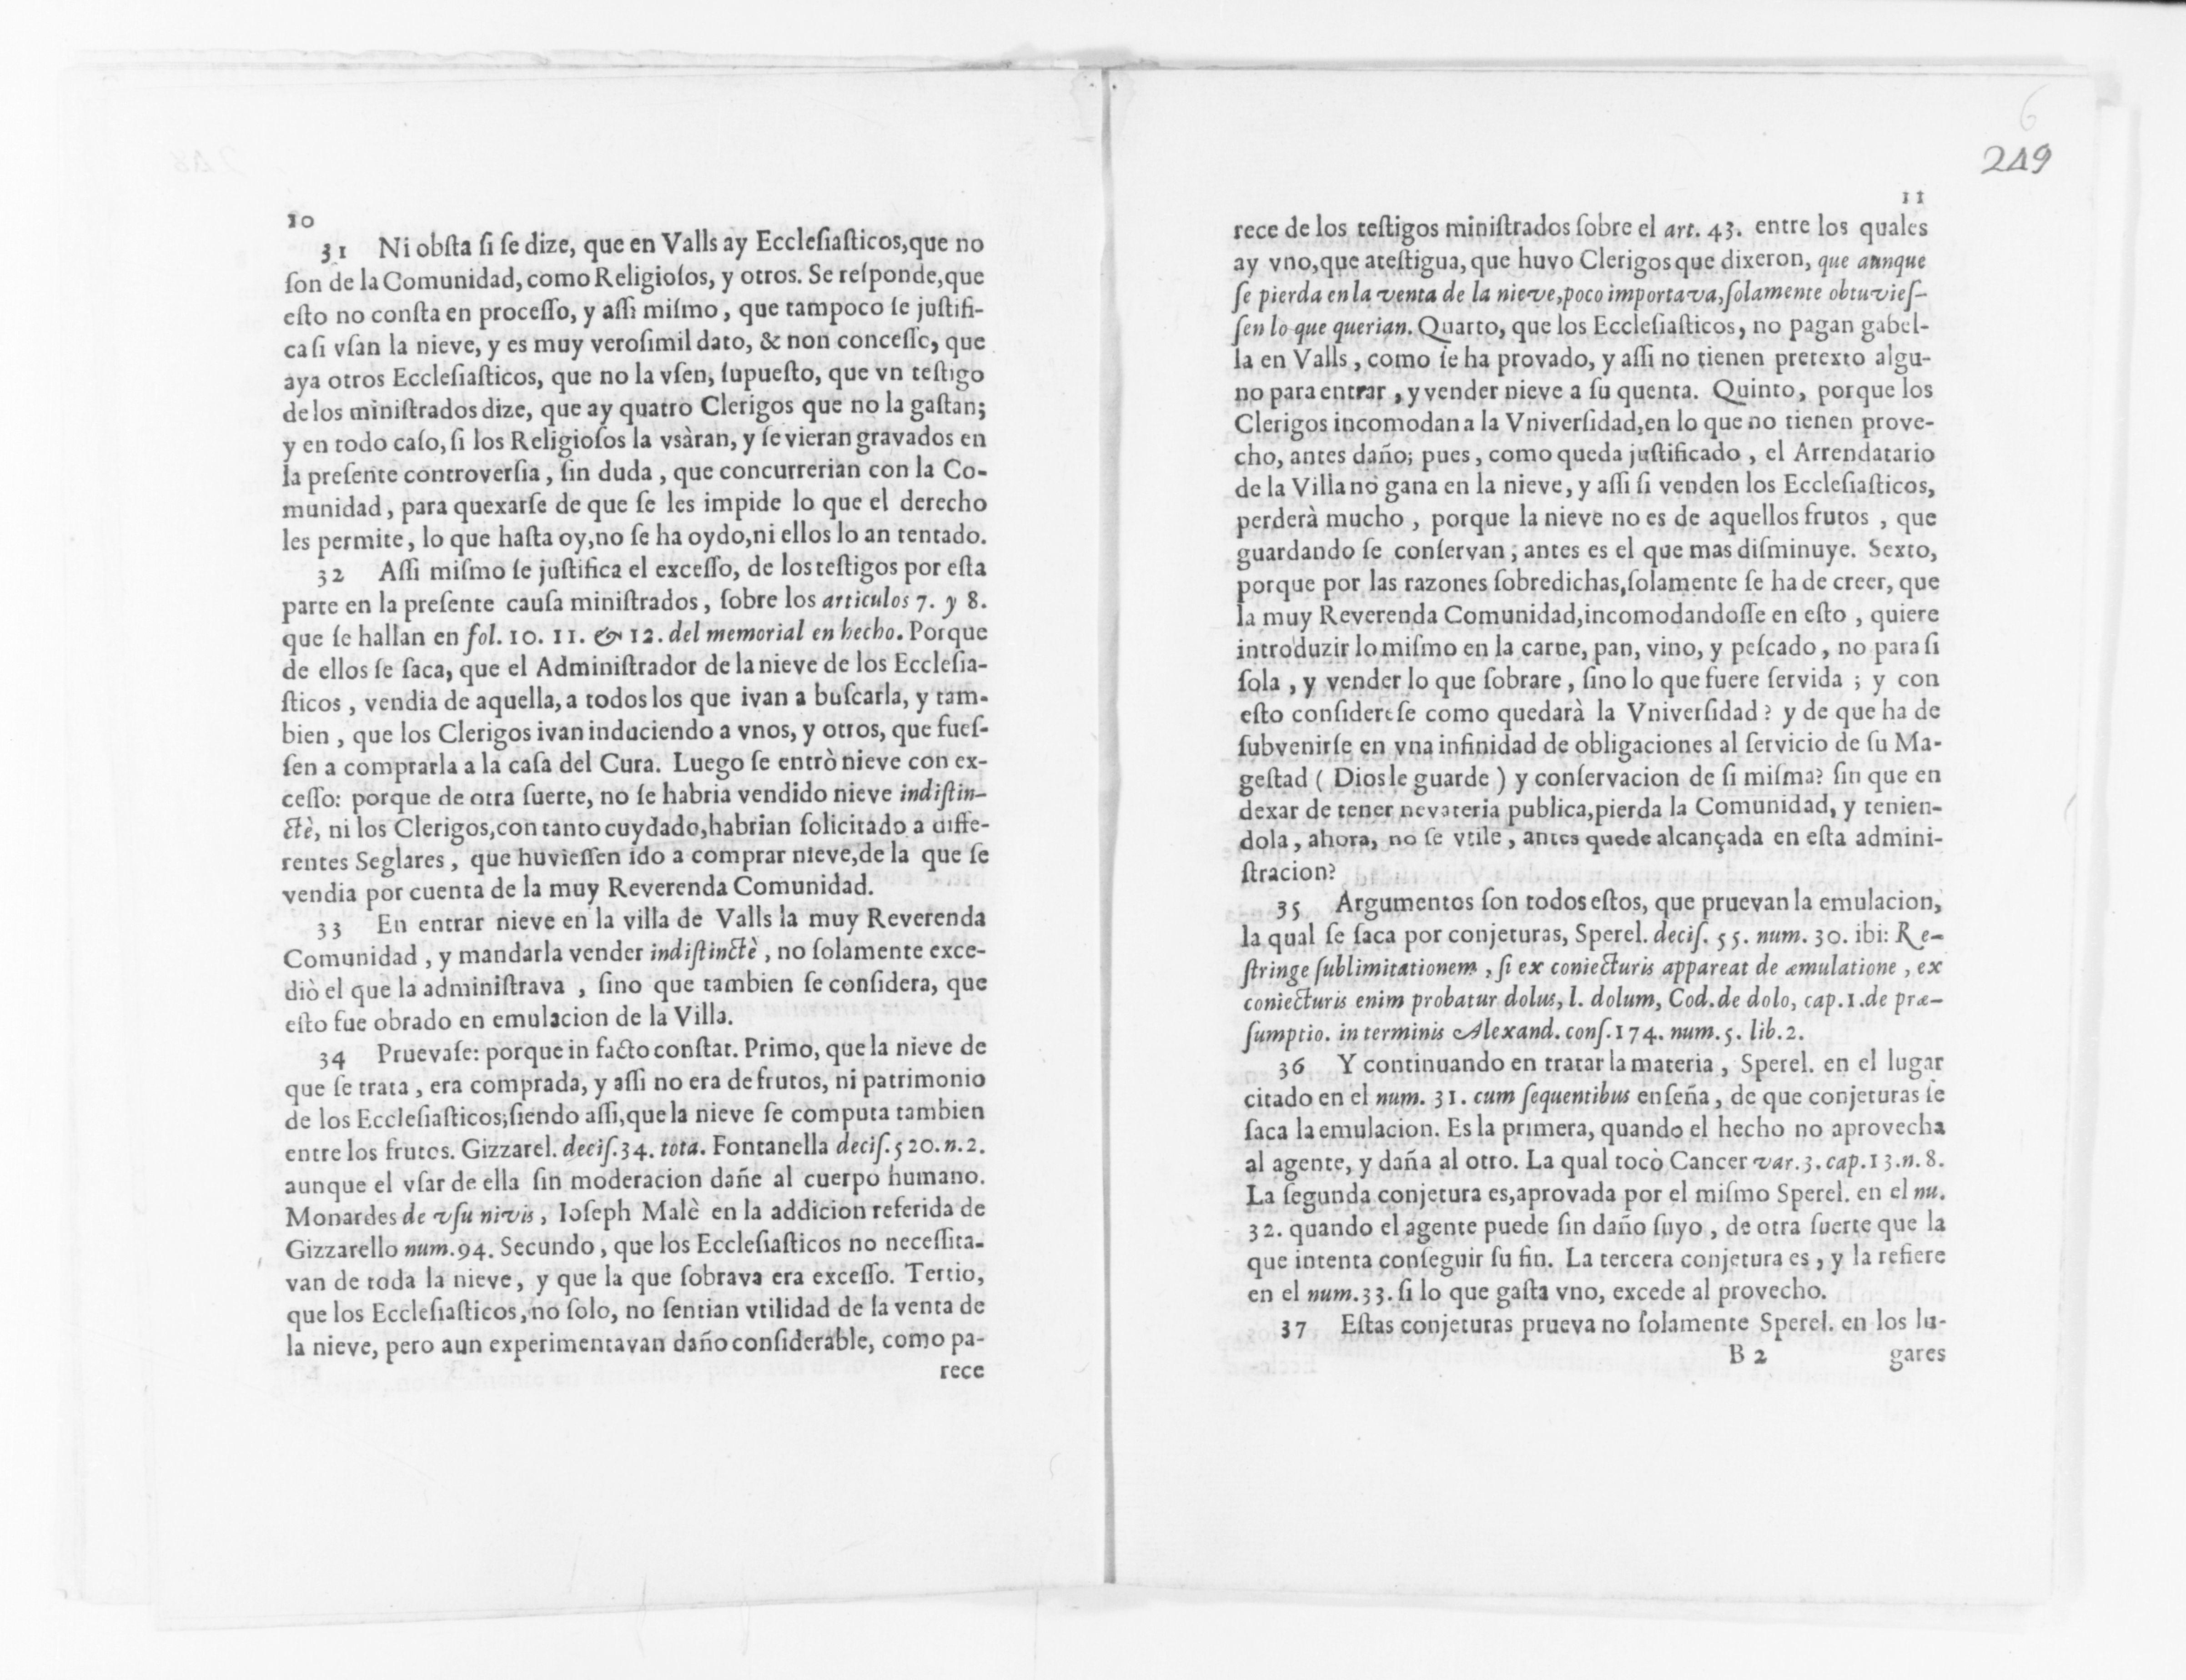 10
31 Ni obſta ſi ſe dize, que en Valls ay Eccleſiaſticos,que no
ſon de la Comunidad, como Religioſos, y otros. Se reſponde,que
eſto no conſta en proceſſo, y aſſi miſmo, que tampoco ſe juſtifi-
ca ſi vſan la nieve, y es muy veroſimil dato, & non conceſſo, que
aya otros Eccleſiaſticos, que no la vſen, ſupueſto, que vn teſtigo
de los miniſtrados dize, que ay quatro Clerigos que no la gaſtan;
y en todo caſo, ſi los Religioſos la vsàran, y ſe vieran gravados en
la preſente controverſia, ſin duda, que concurrerian con la Co-
munidad, para quexarſe de que ſe les impide lo que el derecho
les permite, lo que haſta oy,no ſe ha oydo,ni ellos lo an tentado.
32 Aſſi miſmo ſe juſtifica el exceſſo, de los teſtigos por eſta
parte en la preſente cauſa miniſtrados, ſobre los articulos 7. y 8.
que ſe hallan en fol. 10. 11. & 12. del memorial en hecho. Porque
de ellos ſe ſaca, que el Adminiſtrador de la nieve de los Eccleſia-
ſticos, vendia de aquella, a todos los que ivan a buſcarla, y tam-
bien, que los Clerigos ivan induciendo a vnos, y otros, que fueſ-
ſen a comprarla a la caſa del Cura. Luego ſe entrò nieve con ex-
ceſſo: porque de otra ſuerte, no ſe habria vendido nieve indiſtin-
ctè, ni los Clerigos,con tanto cuydado,habrian ſolicitado a diffe-
rentes Seglares, que huvieſſen ido a comprar nieve,de la que ſe
vendia por cuenta de la muy Reverenda Comunidad.
33 En entrar nieve en la villa de Valls la muy Reverenda
Comunidad, y mandarla vender indiſtinctè, no ſolamente exce-
diò el que la adminiſtrava, ſino que tambien ſe conſidera, que
eſto fue obrado en emulacion de la Villa.
34 Pruevaſe: porque in facto conſtat. Primo, que la nieve de
que ſe trata, era comprada, y aſſi no era de frutos, ni patrimonio
de los Eccleſiaſticos;ſiendo aſſi,que la nieve ſe computa tambien
entre los frutos. Gizzarel. deciſ.34. tota. Fontanella deciſ.520.n.2.
aunque el vſar de ella ſin moderacion dañe al cuerpo humano.
Monardes de vſu nivis, Ioſeph Malè en la addicion referida de
Gizzarello num.94. Secundo, que los Eccleſiaſticos no neceſſita-
van de toda la nieve, y que la que ſobrava era exceſſo. Tertio,
que los Eccleſiaſticos, no ſolo, no ſentian vtilidad de la venta de
la nieve, pero aun experimentavan daño conſiderable, como pa-
rece
6
249
11
rece de los teſtigos miniſtrados ſobre el art. 43. entre los quales
ay vno,que ateſtigua, que huvo Clerigos que dixeron, que aunque
ſe pierda en la venta de la nieve,poco importava,ſolamente obtuvieſ-
ſen lo que querian. Quarto, que los Eccleſiaſticos, no pagan gabel-
la en Valls, como ſe ha provado, y aſſi no tienen pretexto algu-
no para entrar, y vender nieve a ſu quenta. Quinto, porque los
Clerigos incomodan a la Vniverſidad,en lo que no tienen prove-
cho, antes daño; pues, como queda juſtificado, el Arrendatario
de la Villa no gana en la nieve, y aſſi ſi venden los Eccleſiaſticos,
perderà mucho, porque la nieve no es de aquellos frutos, que
guardando ſe conſervan; antes es el que mas diſminuye. Sexto,
porque por las razones ſobredichas,ſolamente ſe ha de creer, que
la muy Reverenda Comunidad,incomodandoſſe en eſto, quiere
introduzir lo miſmo en la carne, pan, vino, y peſcado, no para ſi
ſola, y vender lo que ſobrare, ſino lo que fuere ſervida; y con
eſto conſidereſe como quedarà la Vniverſidad? y de que ha de
ſubvenirſe en vna infinidad de obligaciones al ſervicio de ſu Ma-
geſtad ( Dios le guarde ) y conſervacion de ſi miſma? ſin que en
dexar de tener nevateria publica,pierda la Comunidad, y tenien-
dola, ahora, no ſe vtile, antes quede alcançada en eſta admini-
ſtracion?
35 Argumentos ſon todos eſtos, que pruevan la emulacion,
la qual ſe ſaca por conjeturas, Sperel. deciſ. 55. num. 30. ibi: Re-
ſtringe ſublimitationem, ſi ex coniecturis appareat de æmulatione, ex
coniecturis enim probatur dolus, l. dolum, Cod. de dolo, cap.1.de præ-
ſumptio. in terminis Alexand. conſ.174. num.5. lib.2.
36 Y continuando en tratar la materia, Sperel. en el lugar
citado en el num. 31. cum ſequentibus enſeña, de que conjeturas ſe
ſaca la emulacion. Es la primera, quando el hecho no aprovecha
al agente, y daña al otro. La qual tocò Cancer var.3.cap.13.n.8.
La ſegunda conjetura es,aprovada por el miſmo Sperel. en el nu.
32. quando el agente puede ſin daño ſuyo, de otra ſuerte que la
que intenta conſeguir ſu fin. La tercera conjetura es, y la refiere
en el num.33. ſi lo que gaſta vno, excede al provecho.
37 Eſtas conjeturas prueva no ſolamente Sperel. en los lu-
B 2 gares